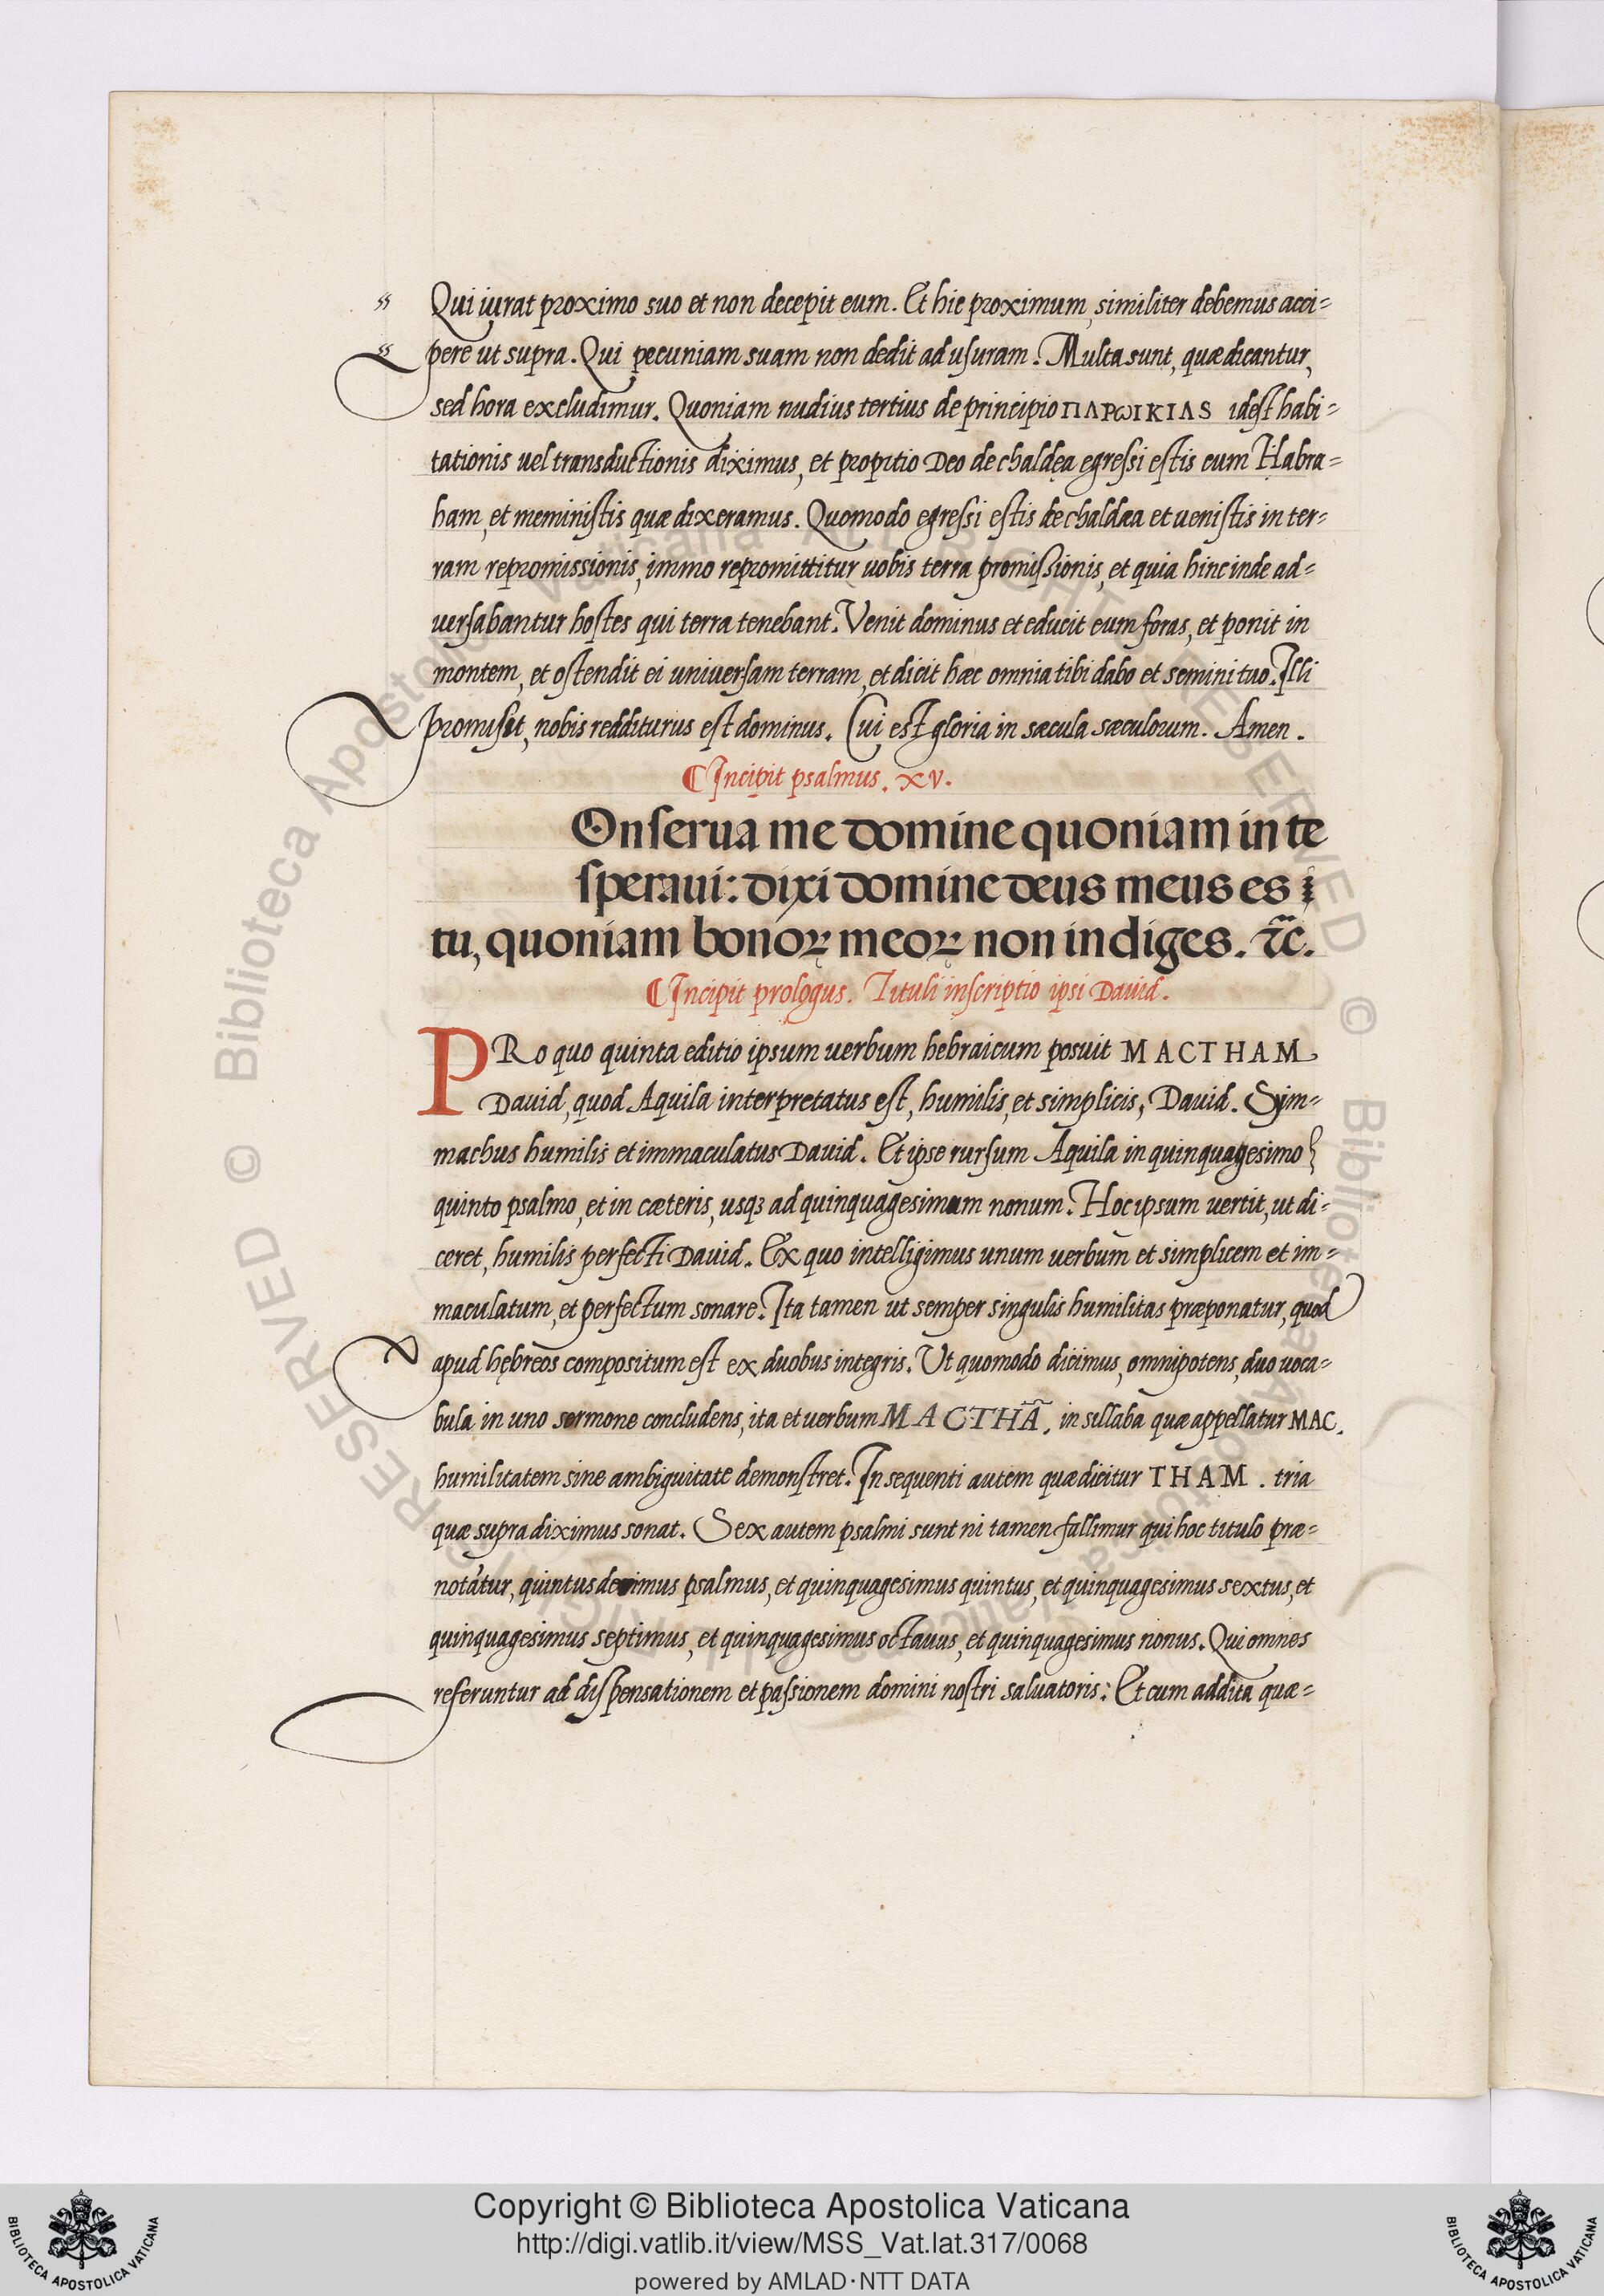 Qui iurat proximo suo et non decepit eum. Et hic proximum, similiter debemus acci=
pere ut supra. Qui pecuniam suam non dedit ad usuram. Multa sunt, quæ dicantur,
sed hora excludimur. Quoniam nudius tertius de principio ΠΑΡωΙΚΙΑS idest habi=
tationis uel transductionis diximus, et propitio Deo de chaldęa egressi estis cum Habra=
ham, et meministis quæ dixeramus. Quomodo egressi estis de chaldæa et uenistis in ter=
ram repromissionis, immo repromittitur uobis terra promissionis, et quia hinc inde ad=
uersabantur hostes qui terra tenebant. Venit dominus et educit eum foras, et ponit in
montem, et ostendit ei uniuersam terram, et dicit hæc omnia tibi dabo et semini tuo. Illi
promisit, nobis redditurus est dominus. Cui est gloria in sæcula sæculorum. Amen.
¶Incipit psalmus. xv.
Onserua me domine quoniam in te
speraui: dixi domine deus meus es
tu, quoniam bonoꝝ meoꝝ non indiges. ⁊c̃.
¶Incipit prologus. Tituli inscriptio ipsi Dauid.
PRo quo quinta editio ipsum uerbum hebraicum posuit MACTHAM
Dauid, quod Aquila interpretatus est, humilis, et simplicis, Dauid. Sym=
machus humilis et immaculatus Dauid. Et ipse rursum Aquila in quinquagesimo
quinto psalmo, et in cæteris, usqꝫ ad quinquagesimum nonum. Hoc ipsum vertit, ut di=
ceret, humilis perfecti Dauid. Ex quo intelligimus unum uerbum et simplicem et im=
maculatum, et perfectum sonare. Ita tamen ut semper singulis humilitas præponatur, quod
apud hębreos compositum est ex duobus integris. Ut quomodo dicimus, omnipotens, duo uoca=
bula in uno sermone concludens, ita et uerbum MACTHÃ, in sillaba quæ appellatur MAC.
humilitatem sine ambiguitate demonstret. In sequenti autem quæ dicitur THAM. tria
quæ supra diximus sonat. Sex autem psalmi sunt ni tamen fallimur qui hoc titulo præ=
notátur, quintus decimus psalmus, et quinquagesimus quintus, et quinquagesimus sextus, et
quinquagesimus septimus, et quinquagesimus octauus, et quinquagesimus nonus. Qui omnes
referuntur ad dispensationem et passionem domini nostri saluatoris: Et cum addita quæ=
Copyright © Biblioteca Apostolica Vaticana
http://digi.vatlib.it/view/MSS_Vat.lat.317/0068
powered by AMLAD·NTT DATA
BIBLIOTECA APOSTOLICA VATICANA
BIBLIOTECA APOSTOLICA VATICANA